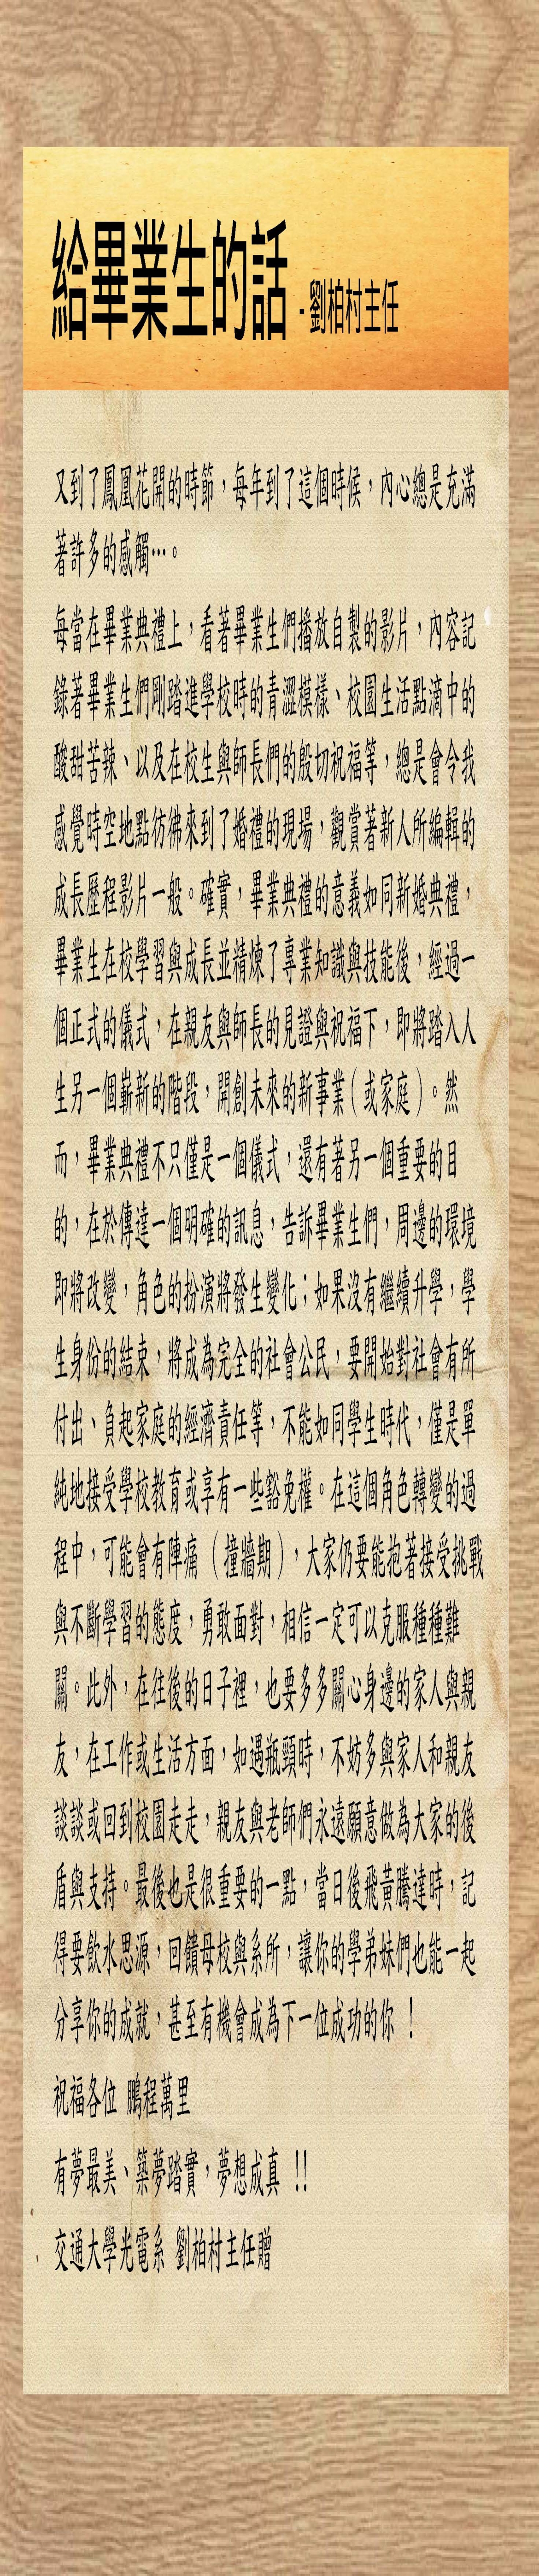 給畢業生的話 - 劉柏村主任
又到了鳳凰花開的時節，每年到了這個時候，內心總是充滿
著許多的感觸…。
每當在畢業典禮上，看著畢業生們播放自製的影片，內容記
錄著畢業生們剛踏進學校時的青澀模樣、校園生活點滴中的
酸甜苦辣、以及在校生與師長們的殷切祝福等，總是會令我
感覺時空地點彷彿來到了婚禮的現場，觀賞著新人所編輯的
成長歷程影片一般。確實，畢業典禮的意義如同新婚典禮，
畢業生在校學習與成長並精煉了專業知識與技能後，經過一
個正式的儀式，在親友與師長的見證與祝福下，即將踏入人
生另一個嶄新的階段，開創未來的新事業（或家庭）。然
而，畢業典禮不只僅是一個儀式，還有著另一個重要的目
的，在於傳達一個明確的訊息，告訴畢業生們，周邊的環境
即將改變，角色的扮演將發生變化；如果沒有繼續升學，學
生身份的結束，將成為完全的社會公民，要開始對社會有所
付出、負起家庭的經濟責任等，不能如同學生時代，僅是單
純地接受學校教育或享有一些豁免權。在這個角色轉變的過
程中，可能會有陣痛（撞牆期），大家仍要能抱著接受挑戰
與不斷學習的態度，勇敢面對，相信一定可以克服種種難
關。此外，在往後的日子裡，也要多多關心身邊的家人與親
友，在工作或生活方面，如遇瓶頸時，不妨多與家人和親友
談談或回到校園走走，親友與老師們永遠願意做為大家的後
盾與支持。最後也是很重要的一點，當日後飛黃騰達時，記
得要飲水思源，回饋母校與系所，讓你的學弟妹們也能一起
分享你的成就，甚至有機會成為下一位成功的你 !
祝福各位 鵬程萬里
有夢最美、築夢踏實，夢想成真 !!
交通大學光電系 劉柏村主任贈